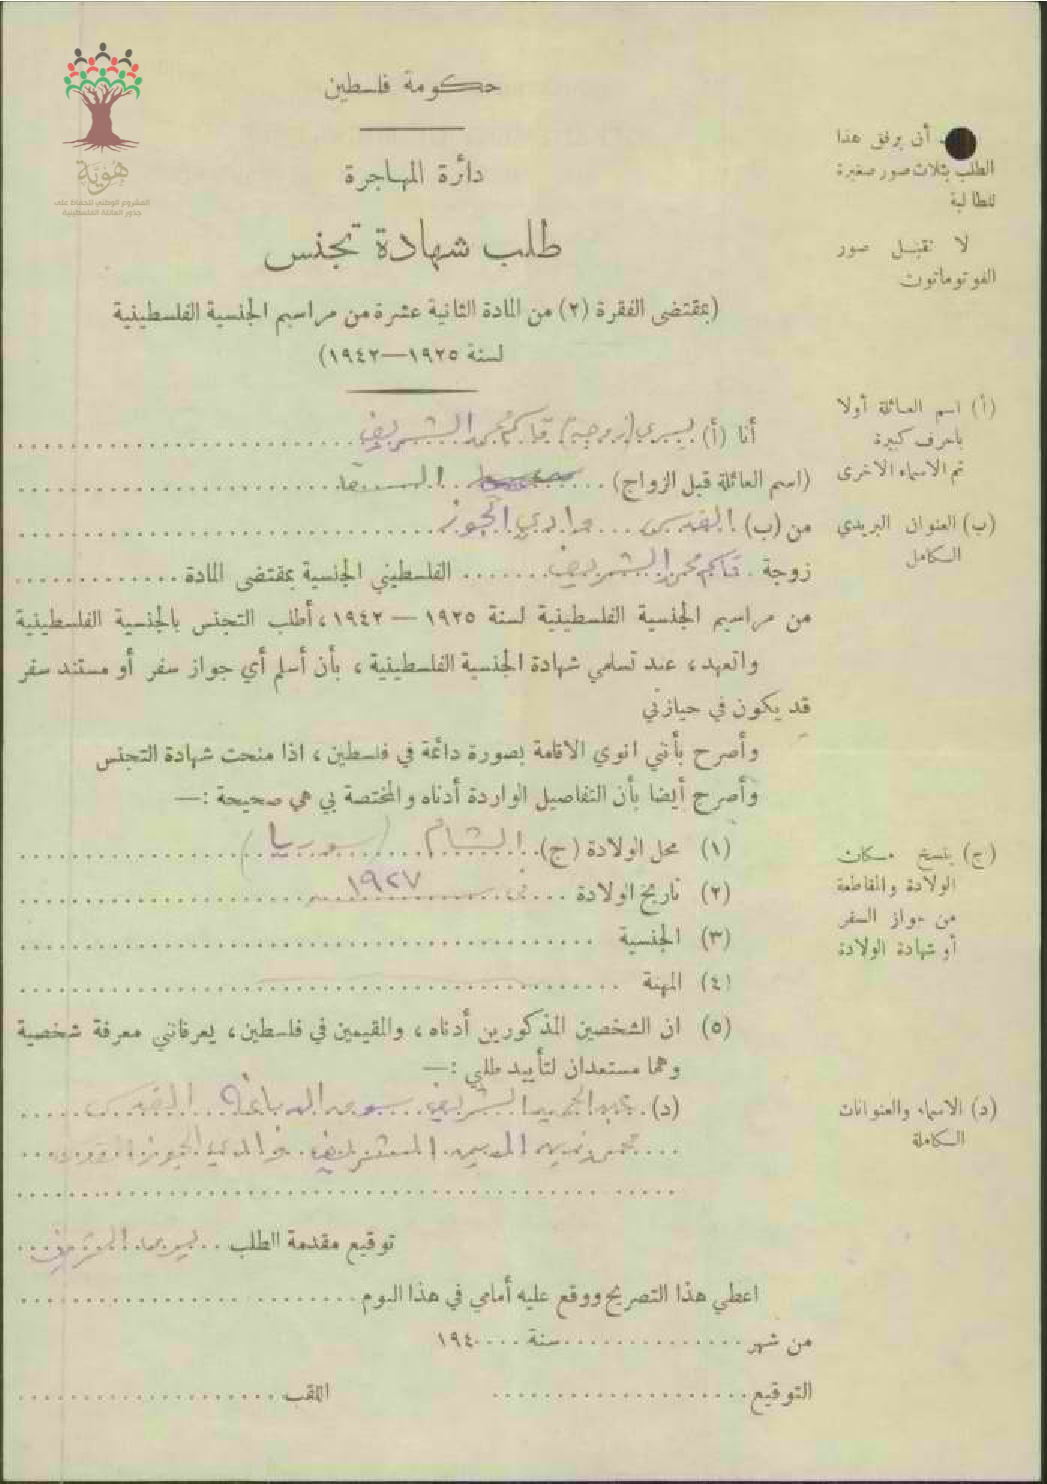 هوية
المشروع الوطني للحفاظ على
جذور العائلة الفلسطينية
حكومة فلسطين
دائرة المهاجرة
طلب شهادة تجنس
(بمقتضى الفقرة (٢) من المادة الثانية عشرة من مراسيم الجنسية الفلسطينية
لسنة ١٩٢٥—١٩٤٢)
أن يرفق هذا
الطلب بثلاث صور صغيرة
للطالبة
لا تقبل صور
الفوتوماتون
أنا (أ) يسرى (زوجة) قاسم محمد الشريف
(اسم العائلة قبل الزواج)
من (ب) القدس وادي الجوز
زوجة قاسم محمد الشريف الفلسطيني الجنسية بمقتضى المادة
من مراسيم الجنسية الفلسطينية لسنة ١٩٢٥ — ١٩٤٢، أطلب التجنس بالجنسية الفلسطينية
واتعهد، عند تسلمي شهادة الجنسية الفلسطينية، بأن أسلم أي جواز سفر أو مستند سفر
قد يكون في حيازتي
وأصرح بأنني انوي الاقامة بصورة دائمة في فلسطين، اذا منحت شهادة التجنس
وأصرح أيضا بأن التفاصيل الواردة أدناه والمختصة بي هي صحيحة :—
(١) محل الولادة (ج) الشام (سوريا)
(٢) تاريخ الولادة ١٩٢٧
(٣) الجنسية
(٤) المهنة
(٥) ان الشخصين المذكورين أدناه، والمقيمين في فلسطين، يعرفانني معرفة شخصية
وهما مستعدان لتأييد طلبي :—
(د) عبد الحميد الشريف القدس
الشريف وادي الجوز القدس
توقيع مقدمة الطلب يسرى الشريف
اعطي هذا التصريح ووقع عليه أمامي في هذا اليوم
من شهر سنة ١٩٤
التوقيع اللقب
(أ) اسم العائلة أولا
باحرف كبيرة
ثم الاسماء الاخرى
(ب) العنوان البريدي
الكامل
(ج) ينسخ مكان
الولادة والمقاطعة
من جواز السفر
أو شهادة الولادة
(د) الاسماء والعنوانات
الكاملة